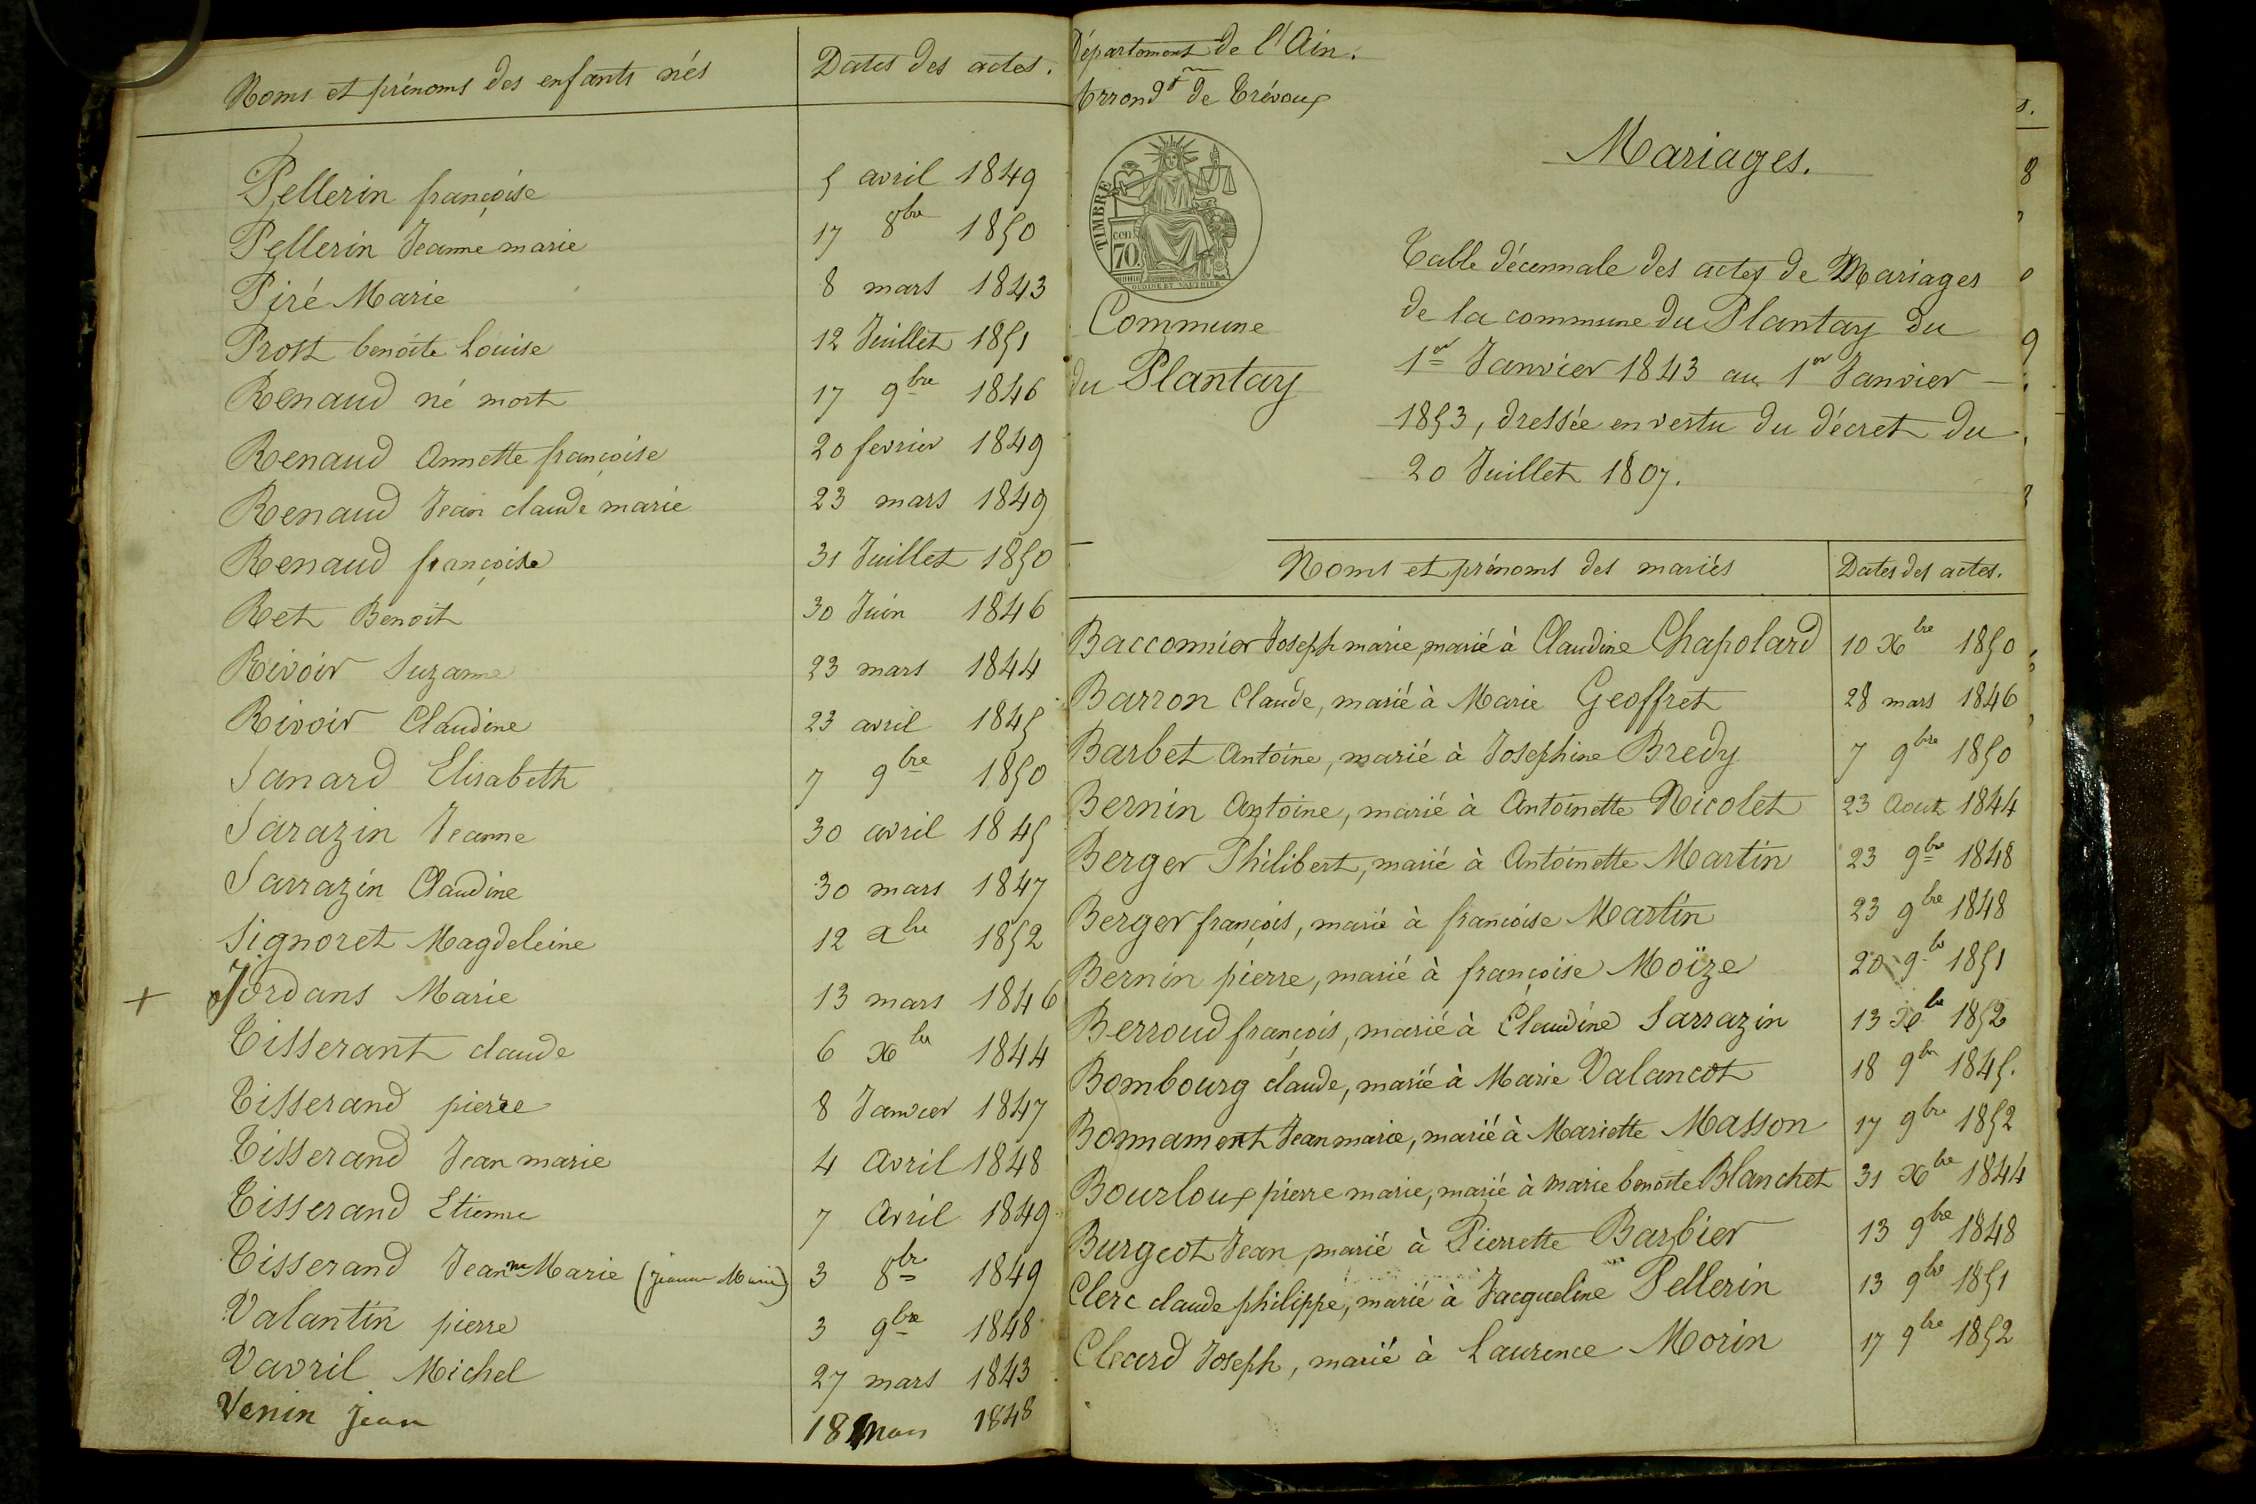 Noms et prénoms des enfants nés
Dates des actes.
Pellerin françoise 5 avril 1849
Pellerin Jeanne marie 17 8bre 1850
Piré Marie 8 mars 1843
Prost benoite Louise 12 Juillet 1851
Renaud né mort 17 9bre 1846
Renaud Annette françoise 20 fevrier 1849
Renaud Jean claude marie 23 mars 1849
Renaud françoise 31 Juillet 1850
Ret Benoit 30 Juin 1846
Rivoir Suzanne 23 mars 1844
Rivoir Claudine 23 avril 1845
Sanard Elisabeth 7 9bre 1850
Sarazin Jeanne 30 avril 1845
Sarrazin Claudine 30 mars 1847
Signoret Magdeleine 12 xbre 1852
+ Jordans Marie 13 mars 1846
Tisserant claude 6 Xbre 1844
Tisserand pierre 8 Janvier 1847
Tisserand Jean marie 4 Avril 1848
Tisserand Etienne 7 Avril 1849
Tisserand Jeanne Marie (Jeanne Marie) 3 8bre 1849
Valantin pierre 3 9bre 1848
Vavril Michel 27 mars 1843
Venin Jean 18 mars 1848
Département de l'Ain.
Arrondt de Trévoux
TIMBRE
70
Commune
du Plantay
Mariages.
Table décennale des actes de Mariages
de la commune du Plantay du
1er Janvier 1843 au 1er Janvier
1853, dressée en vertu du décret du
20 Juillet 1807.
Noms et prénoms des mariés
Dates des actes.
Bacconnier Joseph marie, marié à Claudine Chapolard 10 Xbre 1850
Barron Claude, marié à Marie Geoffret 28 mars 1846
Barbet Antoine, marié à Josephine Bredy 7 9bre 1850
Bernin Antoine, marié à Antoinette Nicolet 23 Aout 1844
Berger Philibert, marié à Antoinette Martin 23 9bre 1848
Berger françois, marié à françoise Martin 23 9bre 1848
Bernin pierre, marié à françoise Moïze 20 9bre 1851
Berroud françois, marié à Claudine Sarrazin 13 Xbre 1852
Bombourg claude, marié à Marie Valancot 18 9bre 1845.
Bonnament Jean marie, marié à Mariette Masson 17 9bre 1852
Bourloux pierre marie, marié à marie benoite Blanchet 31 Xbre 1844
Burgeot Jean, marié à Pierrette Barbier 13 9bre 1848
Clerc claude philippe, marié à Jacqueline Pellerin 13 9bre 1851
Joseph, marié à Laurence Morin 17 9bre 1852